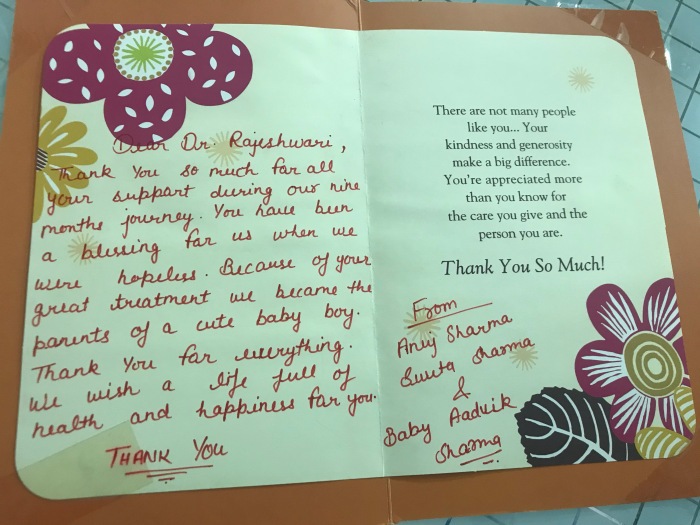 Dear Dr. Rajeshwari,
Thank You so much for all
your support during our nine
months journey. You have been
a blessing for us when we
were hopeless. Because of your
great treatment we became the
parents of a cute baby boy.
Thank You for everything.
We wish a life full of
health and happiness for you.
THANK YOU
There are not many people
like you... Your
kindness and generosity
make a big difference.
You're appreciated more
than you know for
the care you give and the
person you are.
Thank You So Much!
From
Anuj Sharma
Sharma
&
Baby Aadvik
Sharma